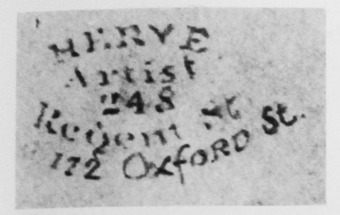 HERVE
Artist
248
Regent St
172 Oxford St.